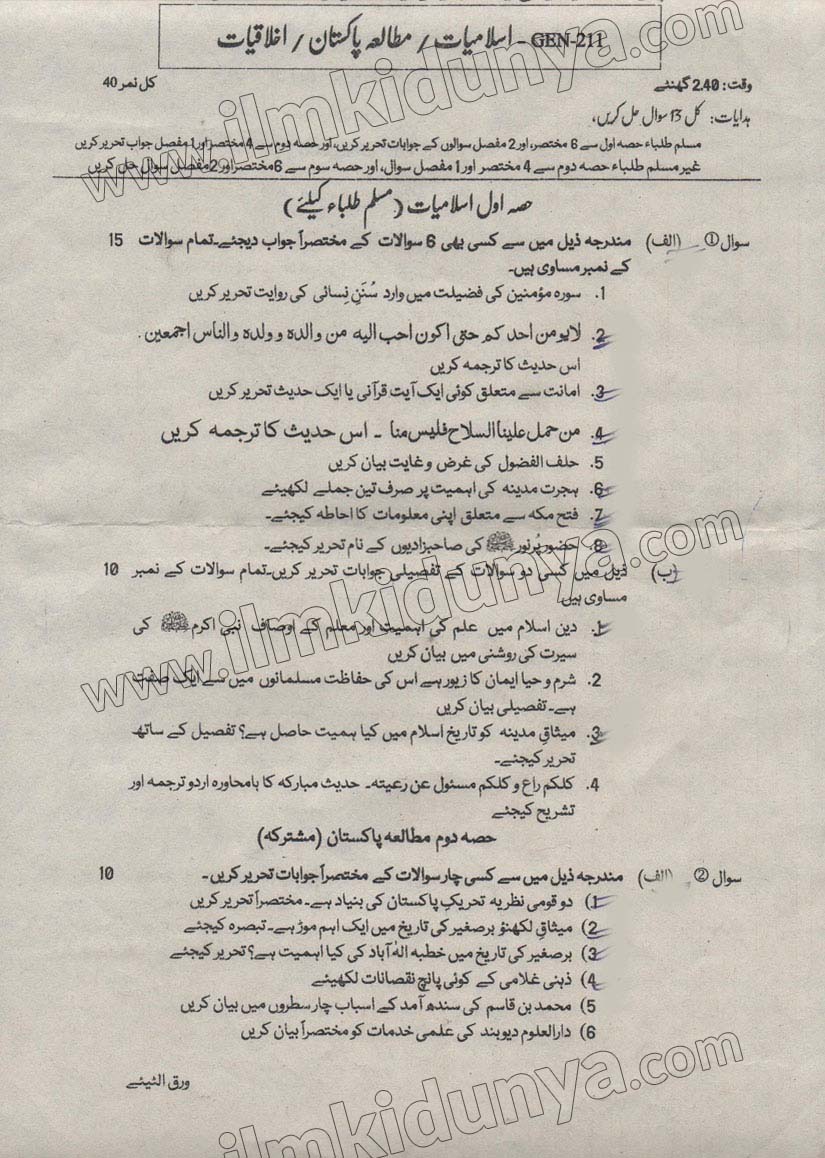 GEN-211 - اسلامیات / مطالعہ پاکستان / اخلاقیات
وقت: 2.40 گھنٹے
کل نمبر 40
ہدایات: کل 13 سوال حل کریں،
مسلم طلباء حصہ اول سے 6 مختصر، اور 2 مفصل سوالوں کے جوابات تحریر کریں، اور حصہ دوم سے 4 مختصر اور 1 مفصل جواب تحریر کریں
غیر مسلم طلباء حصہ دوم سے 4 مختصر اور 1 مفصل سوال، اور حصہ سوم سے 6 مختصر اور 2 مفصل سوال حل کریں
حصہ اول اسلامیات (مسلم طلباء کیلئے)
سوال ① (الف) مندرجہ ذیل میں سے کسی بھی 6 سوالات کے مختصراً جواب دیجئے۔ تمام سوالات 15
کے نمبر مساوی ہیں۔
1. سورہ مؤمنین کی فضیلت میں وارد سُنَنِ نِسائی کی روایت تحریر کریں
2. لایومن احد کم حتی اکون احب الیه من والدہ و ولدہ والناس اجمعین.
اس حدیث کا ترجمہ کریں
3. امانت سے متعلق کوئی ایک آیت قرآنی یا ایک حدیث تحریر کریں
4. من حمل علینا السلاح فلیس منا ۔ اس حدیث کا ترجمہ کریں
5. حلف الفضول کی غرض و غایت بیان کریں
6. ہجرت مدینہ کی اہمیت پر صرف تین جملے لکھیئے
7. فتح مکہ سے متعلق اپنی معلومات کا احاطہ کیجئے۔
8. حضور پُرنور ﷺ کی صاحبزادیوں کے نام تحریر کیجئے۔
(ب) ذیل میں کسی دو سوالات کے تفصیلی جوابات تحریر کریں۔ تمام سوالات کے نمبر 10
مساوی ہیں
1. دین اسلام میں علم کی اہمیت اور معلم کے اوصاف نبی اکرم ﷺ کی
سیرت کی روشنی میں بیان کریں
2. شرم و حیا ایمان کا زیور ہے اس کی حفاظت مسلمانوں میں سے ایک صفت
ہے۔ تفصیلی بیان کریں
3. میثاقِ مدینہ کو تاریخ اسلام میں کیا ہمیت حاصل ہے؟ تفصیل کے ساتھ
تحریر کیجئے۔
4. کلکم راع و کلکم مسئول عن رعیته۔ حدیث مبارکہ کا بامحاورہ اردو ترجمہ اور
تشریح کیجئے
حصہ دوم مطالعہ پاکستان (مشترکہ)
سوال ② (الف) مندرجہ ذیل میں سے کسی چار سوالات کے مختصراً جوابات تحریر کریں۔ 10
1) دو قومی نظریہ تحریکِ پاکستان کی بنیاد ہے۔ مختصراً تحریر کریں
2) میثاقِ لکھنؤ برصغیر کی تاریخ میں ایک اہم موڑ ہے۔ تبصرہ کیجئے
3) برصغیر کی تاریخ میں خطبہ الہٰ آباد کی کیا اہمیت ہے؟ تحریر کیجئے
4) ذہنی غلامی کے کوئی پانچ نقصانات لکھیئے
5) محمد بن قاسم کی سندھ آمد کے اسباب چار سطروں میں بیان کریں
6) دارالعلوم دیوبند کی علمی خدمات کو مختصراً بیان کریں
ورق الٹیئے
www.ilmkidunya.com
www.ilmkidunya.com
www.ilmkidunya.com
www.ilmkidunya.com